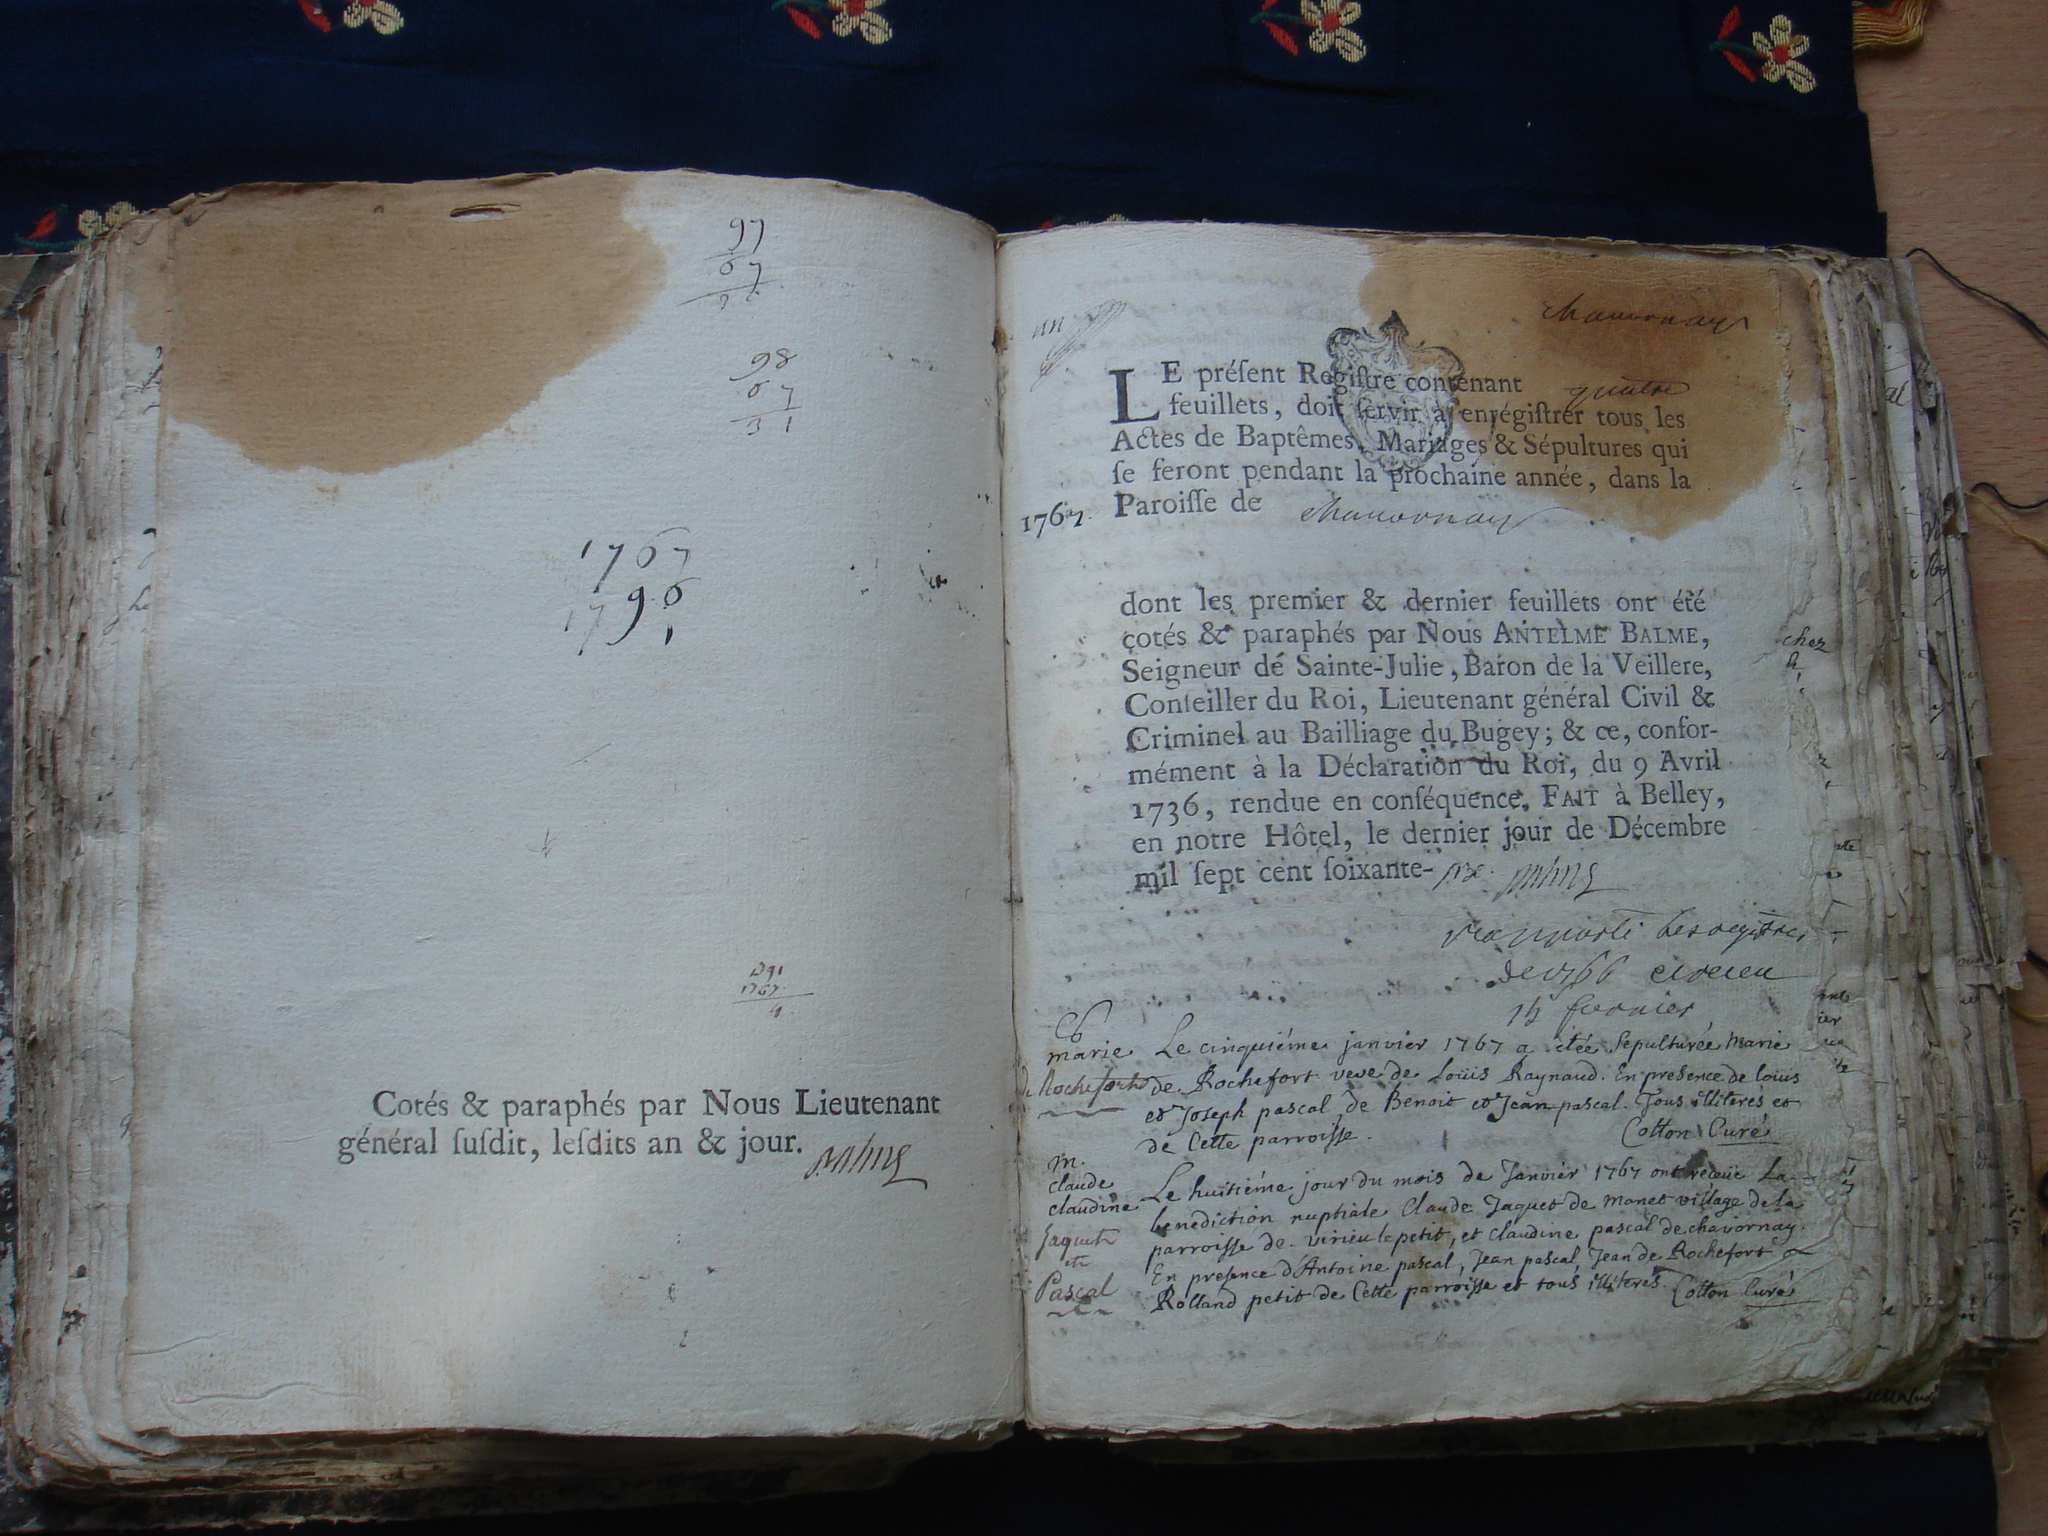 97
67
98
67
31
1767
1796
1
1791
1767
4
Cotés & paraphés par Nous Lieutenant
général ſuſdit, leſdits an & jour.
un
chavornay
LE préſent Regiſtre contenant quatre
feuillets, doit ſervir à enrégiſtrer tous les
Actes de Baptêmes, Mariages & Sépultures qui
ſe feront pendant la prochaine année, dans la
1767. Paroiſſe de chavornay
dont les premier & dernier feuillets ont été
cotés & paraphés par Nous ANTELME BALME,
Seigneur de Sainte-Julie, Baron de la Veillere,
Conſeiller du Roi, Lieutenant général Civil &
Criminel au Bailliage du Bugey; & ce, confor-
mément à la Déclaration du Roi, du 9 Avril
1736, rendue en conſéquence. FAIT à Belley,
en notre Hôtel, le dernier jour de Décembre
mil ſept cent ſoixante-
de 1766
marie
de Rochefort
Le cinquiéme janvier 1767 a etée sepulturée marie
de Rochefort veve de Loüis Raynaud. En presence de loüis
et Joseph pascal, de Benoit et Jean pascal. Tous illiterés et
de Cette parroisse. Cotton Curé
m.
claude
claudine
Jaquet
et
Pascal
Le huitiéme jour du mois de Janvier 1767 ont receüe La
benediction nuptiale Claude Jaquet de manet village de la
parroisse de virieu le petit, et claudine pascal de chavornay.
En presence d'Antoine pascal, Jean pascal, Jean de Rochefort
Rolland petit de Cette parroisse et tous illiterés. Cotton Curé
chez